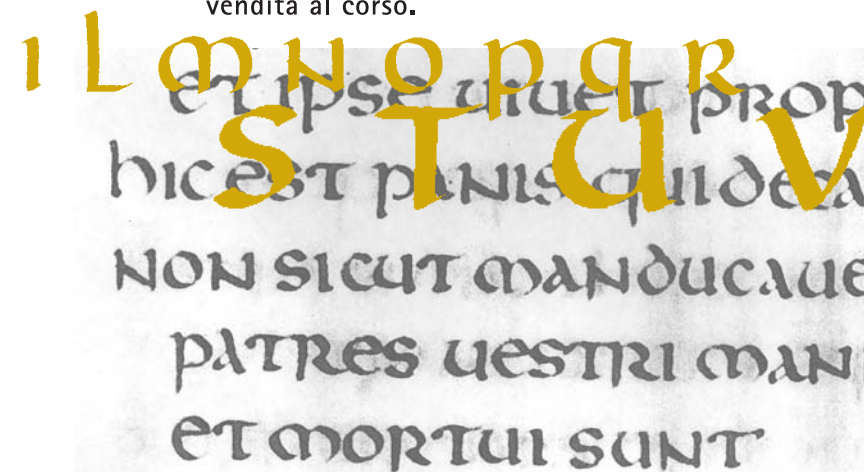 vendita al corso.
I L M N O P Q R
S T U V
ET IPSE UIUET PROP
HIC EST PANIS QUI DE CA
NON SICUT MANDUCAUE
PATRES UESTRI MAN
ET MORTUI SUNT